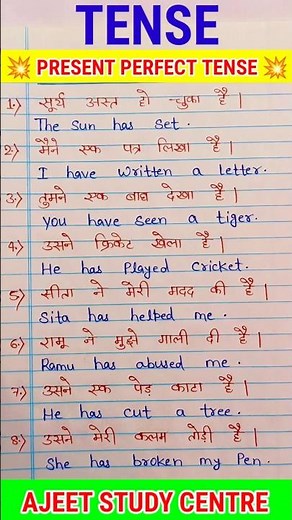 TENSE
PRESENT PERFECT TENSE
1.) सूर्य अस्त हो चुका है |
The Sun has Set.
2.) मैंने एक पत्र लिखा है |
I have written a letter.
3.) तुमने एक बाघ देखा है |
You have Seen a tiger.
4.) उसने क्रिकेट खेला है |
He has Played Cricket.
5.) सीता ने मेरी मदद की है |
Sita has helped me.
6.) रामू ने मुझे गाली दी है |
Ramu has abused me.
7.) उसने एक पेड़ काटा है |
He has Cut a tree.
8.) उसने मेरी कलम तोड़ी है |
She has broken my Pen.
AJEET STUDY CENTRE